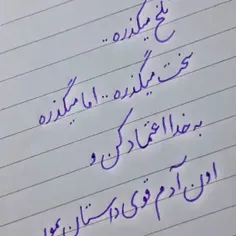 تلخ میگذره ..
سخت میگذره .. اما میگذره
به خدا اعتماد کن و
اون آدم قوی داستان بمون